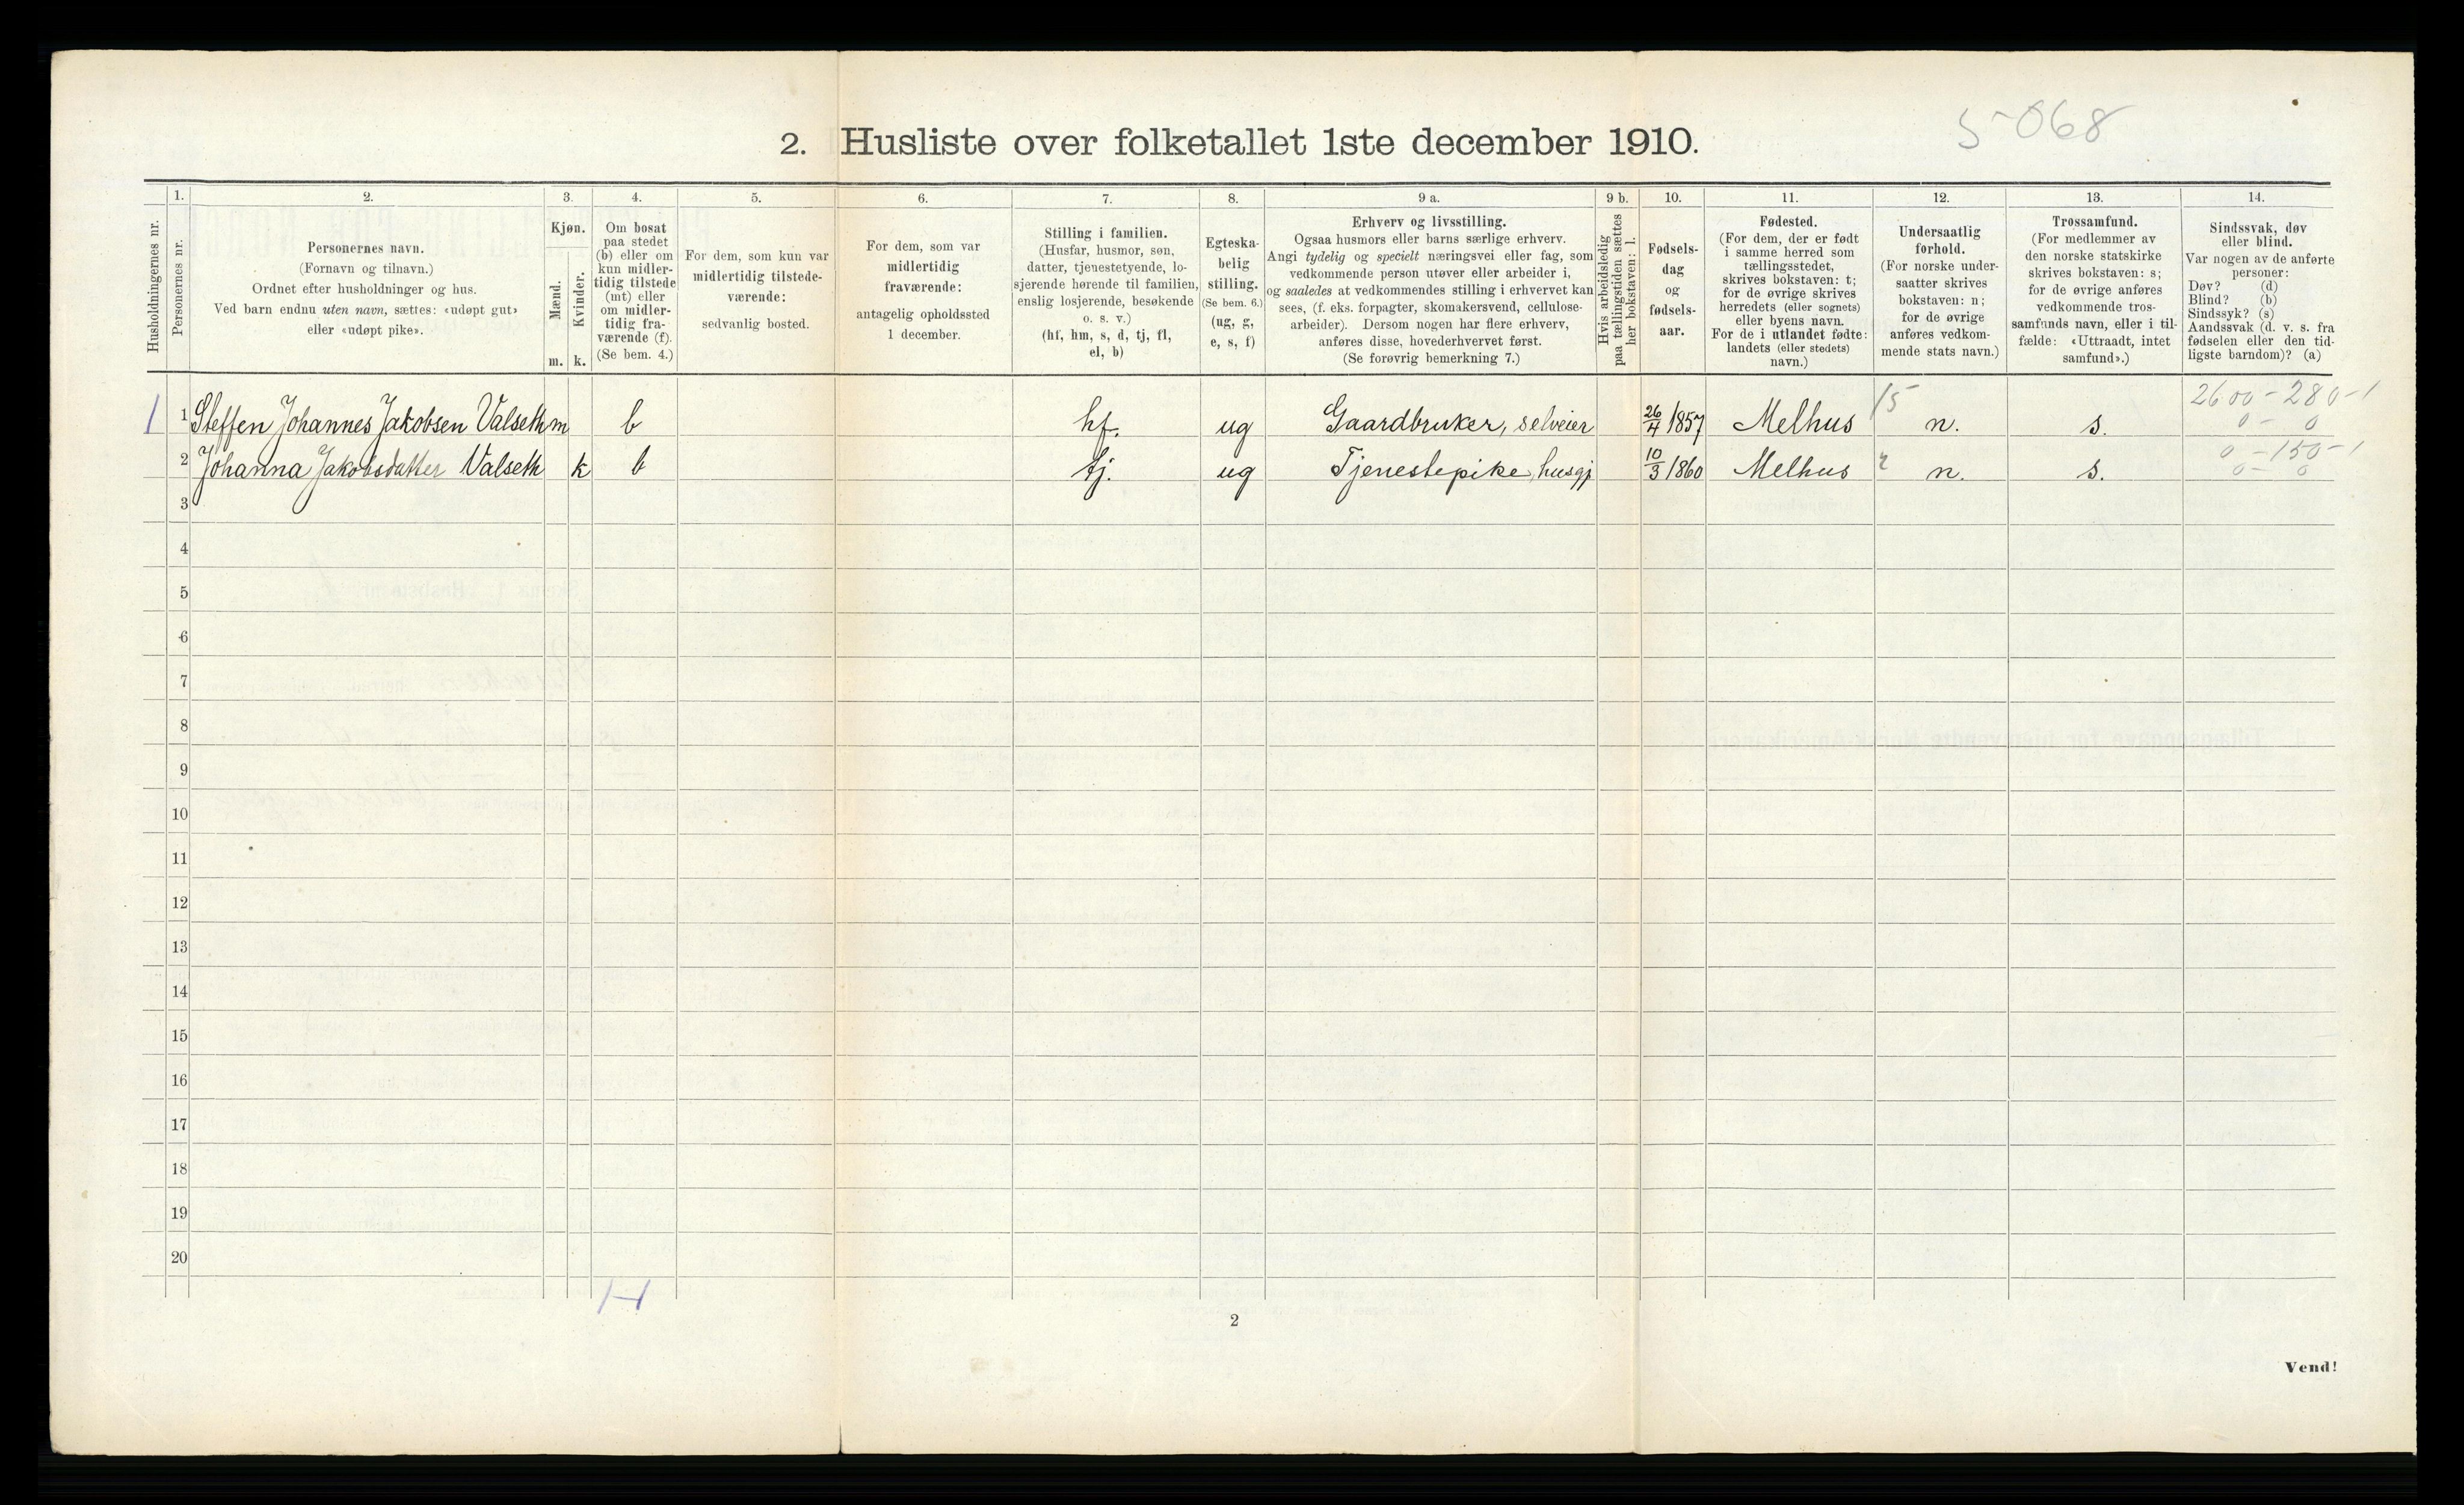 5-068
2. Husliste over folketallet 1ste december 1910.
1. 2. 3. 4. 5. 6. 7. 8. 9 a. 9 b. 10. 11. 12. 13. 14.
Husholdningernes nr.
Personernes nr.
Personernes navn.
(Fornavn og tilnavn.)
Ordnet efter husholdninger og hus.
Ved barn endnu uten navn, sættes: «udøpt gut»
eller «udøpt pike».
Kjøn.
Mænd.
Kvinder.
m. k.
Om bosat
paa stedet
(b) eller om
kun midler-
tidig tilstede
(mt) eller
om midler-
tidig fra-
værende (f).
(Se bem. 4.)
For dem, som kun var
midlertidig tilstede-
værende:
sedvanlig bosted.
For dem, som var
midlertidig
fraværende:
antagelig opholdssted
1 december.
Stilling i familien.
(Husfar, husmor, søn,
datter, tjenestetyende, lo-
sjerende hørende til familien,
enslig losjerende, besøkende
o. s. v.)
(hf, hm, s, d, tj, fl,
el, b)
Egteska-
belig
stilling.
(Se bem. 6.)
(ug, g,
e, s, f)
Erhverv og livsstilling.
Ogsaa husmors eller barns særlige erhverv.
Angi tydelig og specielt næringsvei eller fag, som
vedkommende person utøver eller arbeider i,
og saaledes at vedkommendes stilling i erhvervet kan
sees, (f. eks. forpagter, skomakersvend, cellulose-
arbeider). Dersom nogen har flere erhverv,
anføres disse, hovederhvervet først.
(Se forøvrig bemerkning 7.)
Hvis arbeidsledig
paa tællingstiden sættes
her bokstaven: l.
Fødsels-
dag
og
fødsels-
aar.
Fødested.
(For dem, der er født
i samme herred som
tællingsstedet,
skrives bokstaven: t;
for de øvrige skrives
herredets (eller sognets)
eller byens navn.
For de i utlandet fødte:
landets (eller stedets)
navn.)
Undersaatlig
forhold.
(For norske under-
saatter skrives
bokstaven: n;
for de øvrige
anføres vedkom-
mende stats navn.)
Trossamfund.
(For medlemmer av
den norske statskirke
skrives bokstaven: s;
for de øvrige anføres
vedkommende tros-
samfunds navn, eller i til-
fælde: «Uttraadt, intet
samfund».)
Sindssvak, døv
eller blind.
Var nogen av de anførte
personer:
Døv? (d)
Blind? (b)
Sindssyk? (s)
Aandssvak (d. v. s. fra
fødselen eller den tid-
ligste barndom)? (a)
15 2600-280-1
1 1 Steffen Johannes Jakobsen Valseth m b hf. ug Gaardbruker, selveier 26/4 1857 Melhus n. s. 0 - 0
0 - 150-1
2 Johanna Jakobsdatter Valseth k b tj. ug Tjenestepike, husgj 10/3 1860 Melhus n. s. 0 - 0
3
4
5
6
7
8
9
10
11
12
13
14
15
16
17
18
19
20
1-1
2
Vend!